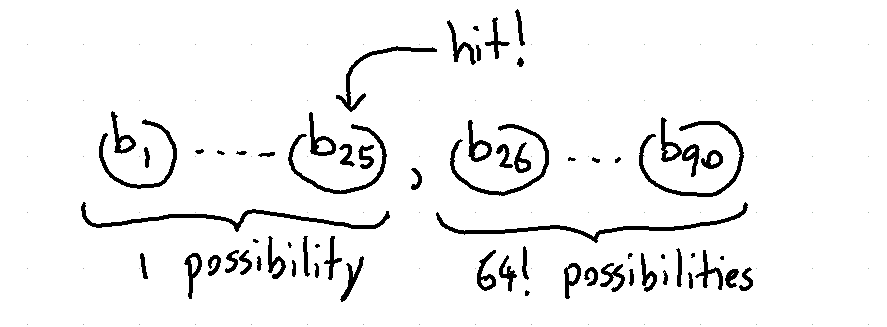 hit!
b1 ..... b25 , b26 ... b90
1 possibility 64! possibilities